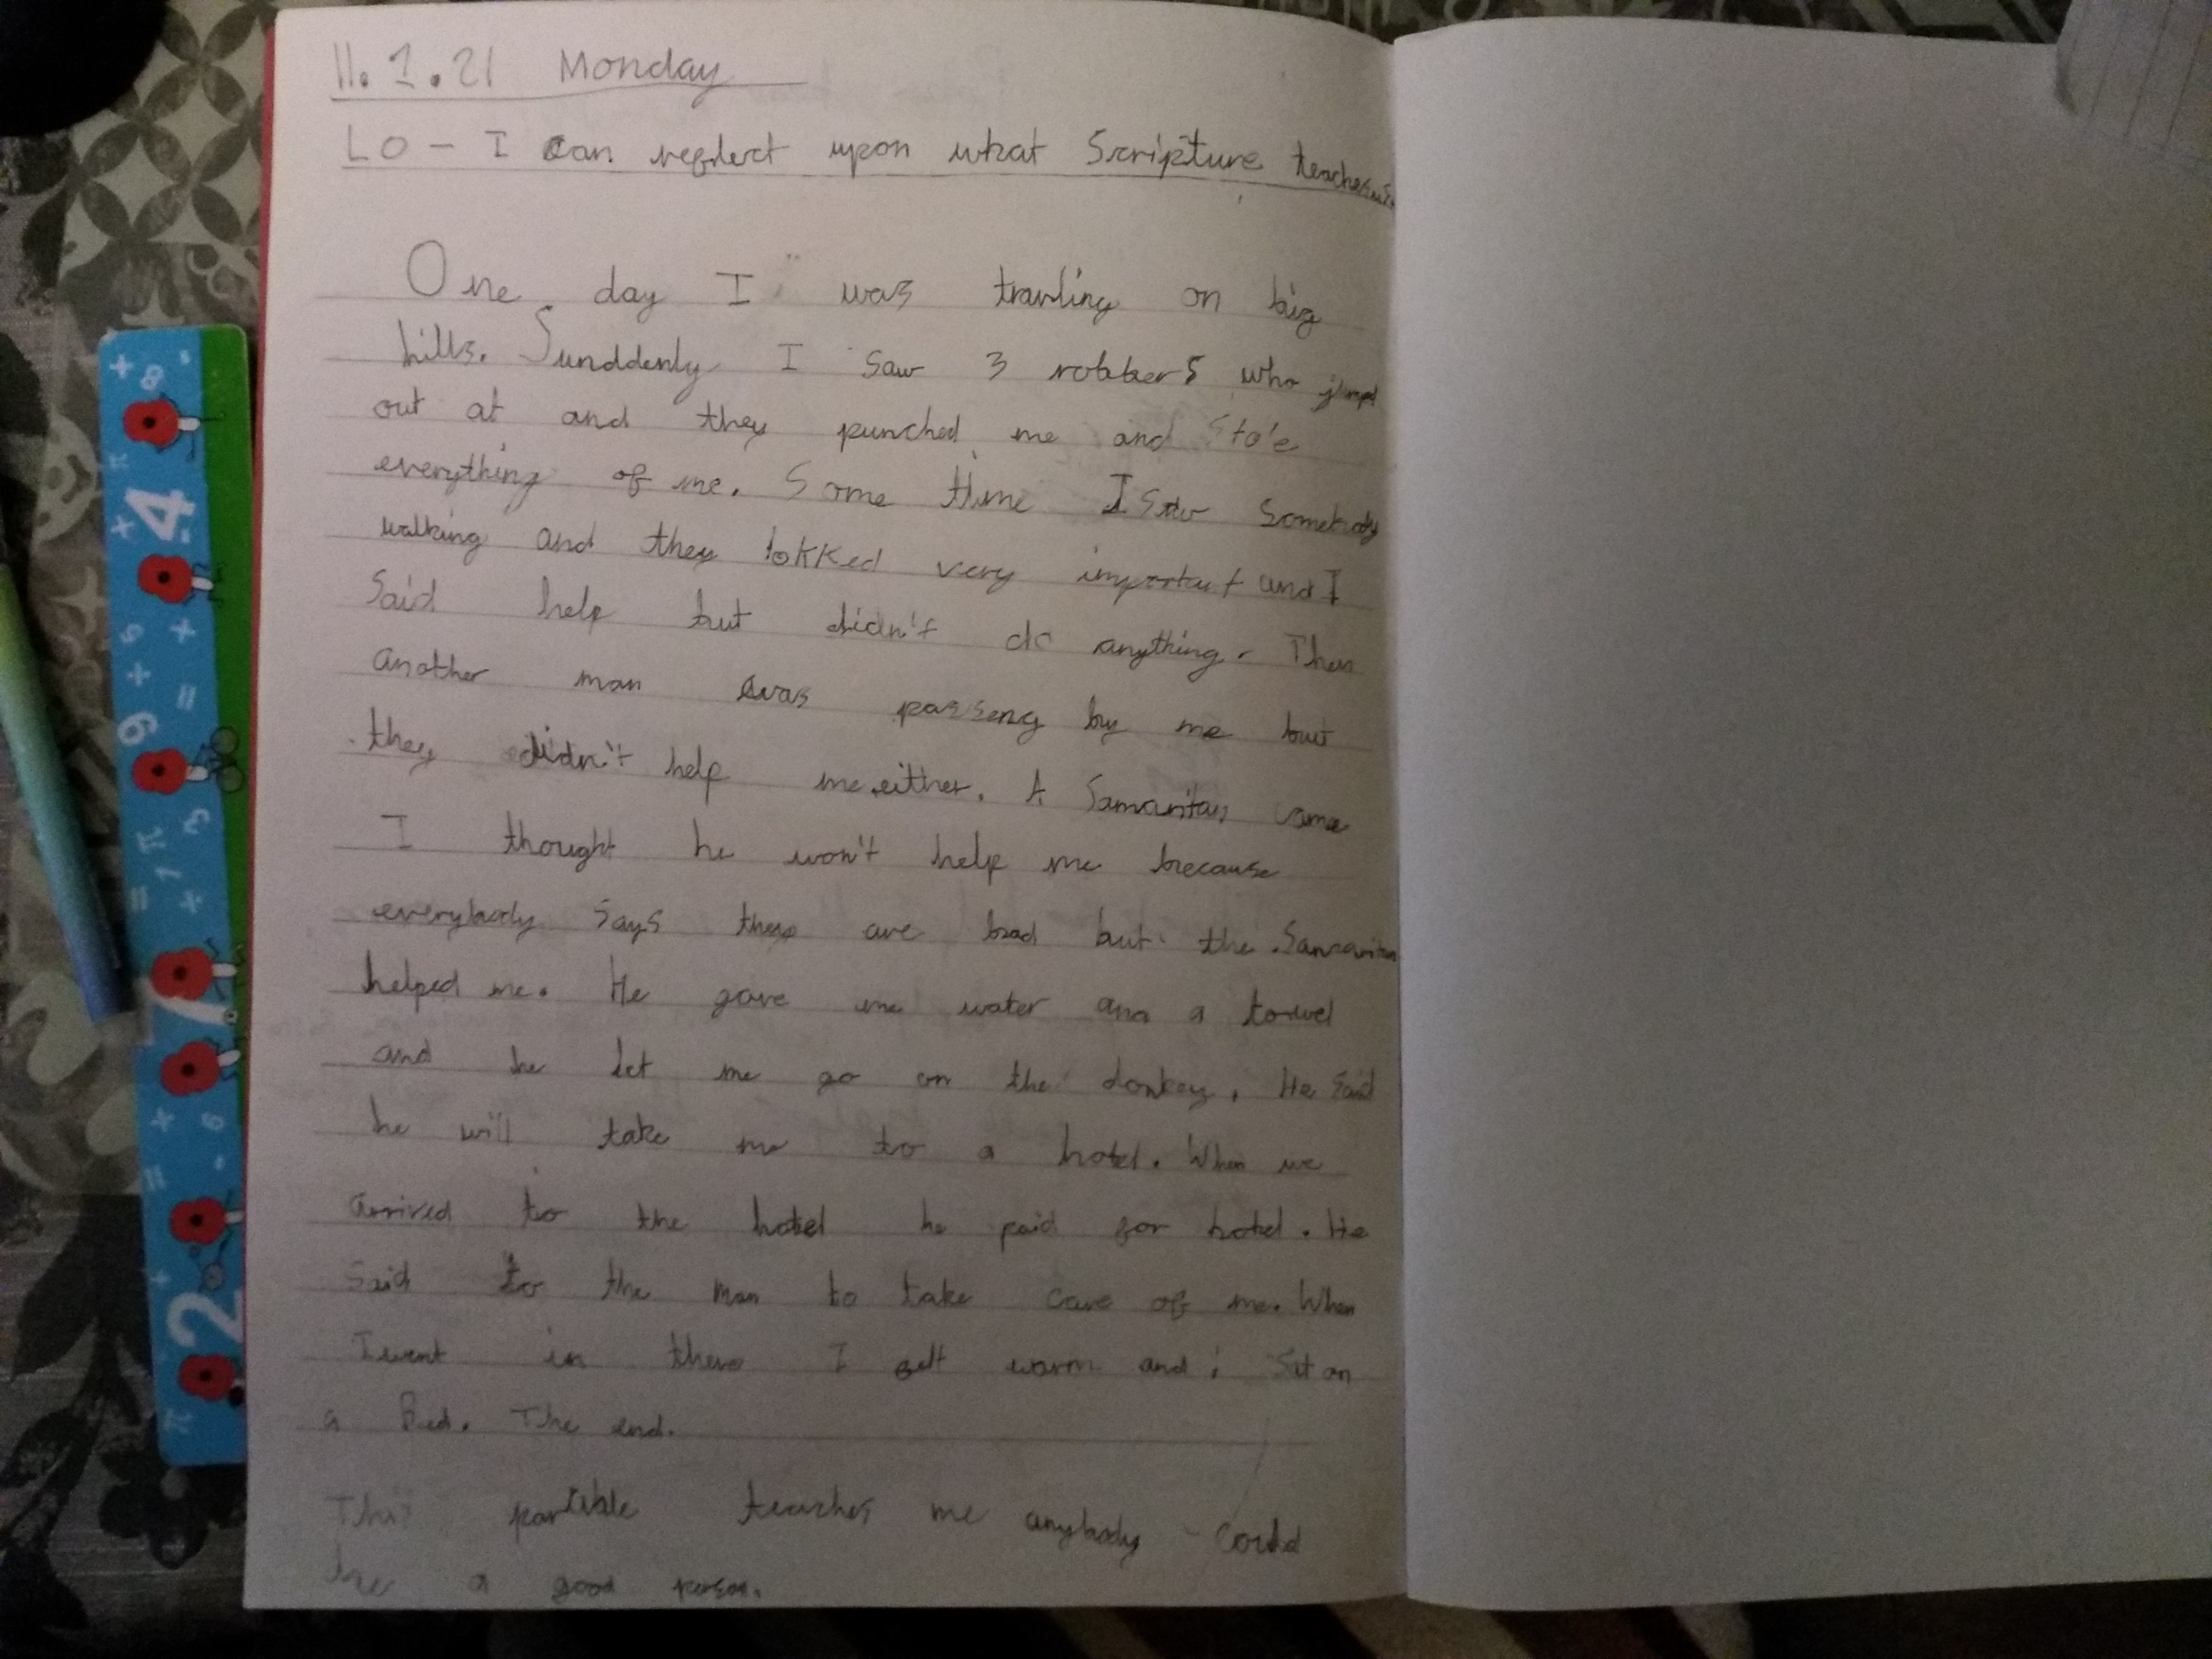 11.1.21 Monday
LO - I can reflect upon what Scripture teaches us.
One day I was travling on big
hills. Sunddenly I saw 3 robbers who jumpd
out at and they punched me and stole
everything of me. Some time I saw somebody
walking and they lokked very important and I
said help but didn't do anything. Then
another man was passeng by me but
they didn't help me either. A Samaritan came
I thought he won't help me because
everybody says they are bad but the Samaritan
helped me. He gave me water and a towel
and he let me go on the donkey. He said
he will take me to a hotel. When we
arrived to the hotel he paid for hotel. He
said to the man to take care of me. When
I went in there I felt warm and i sat on
a Bed. The end.
This parable teaches me anybody could
be a good person.
+ 8 -
+ 4
5 ×
9 ÷ =
π 3
= 1 + ×
7
× 6
= -
2
π